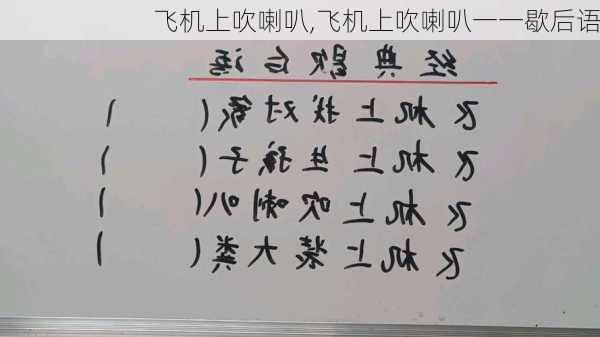 飞机上吹喇叭,飞机上吹喇叭一一歇后语
经典歇后语
飞机上找对象( )
飞机上生孩子( )
飞机上吹喇叭( )
飞机上装大粪( )